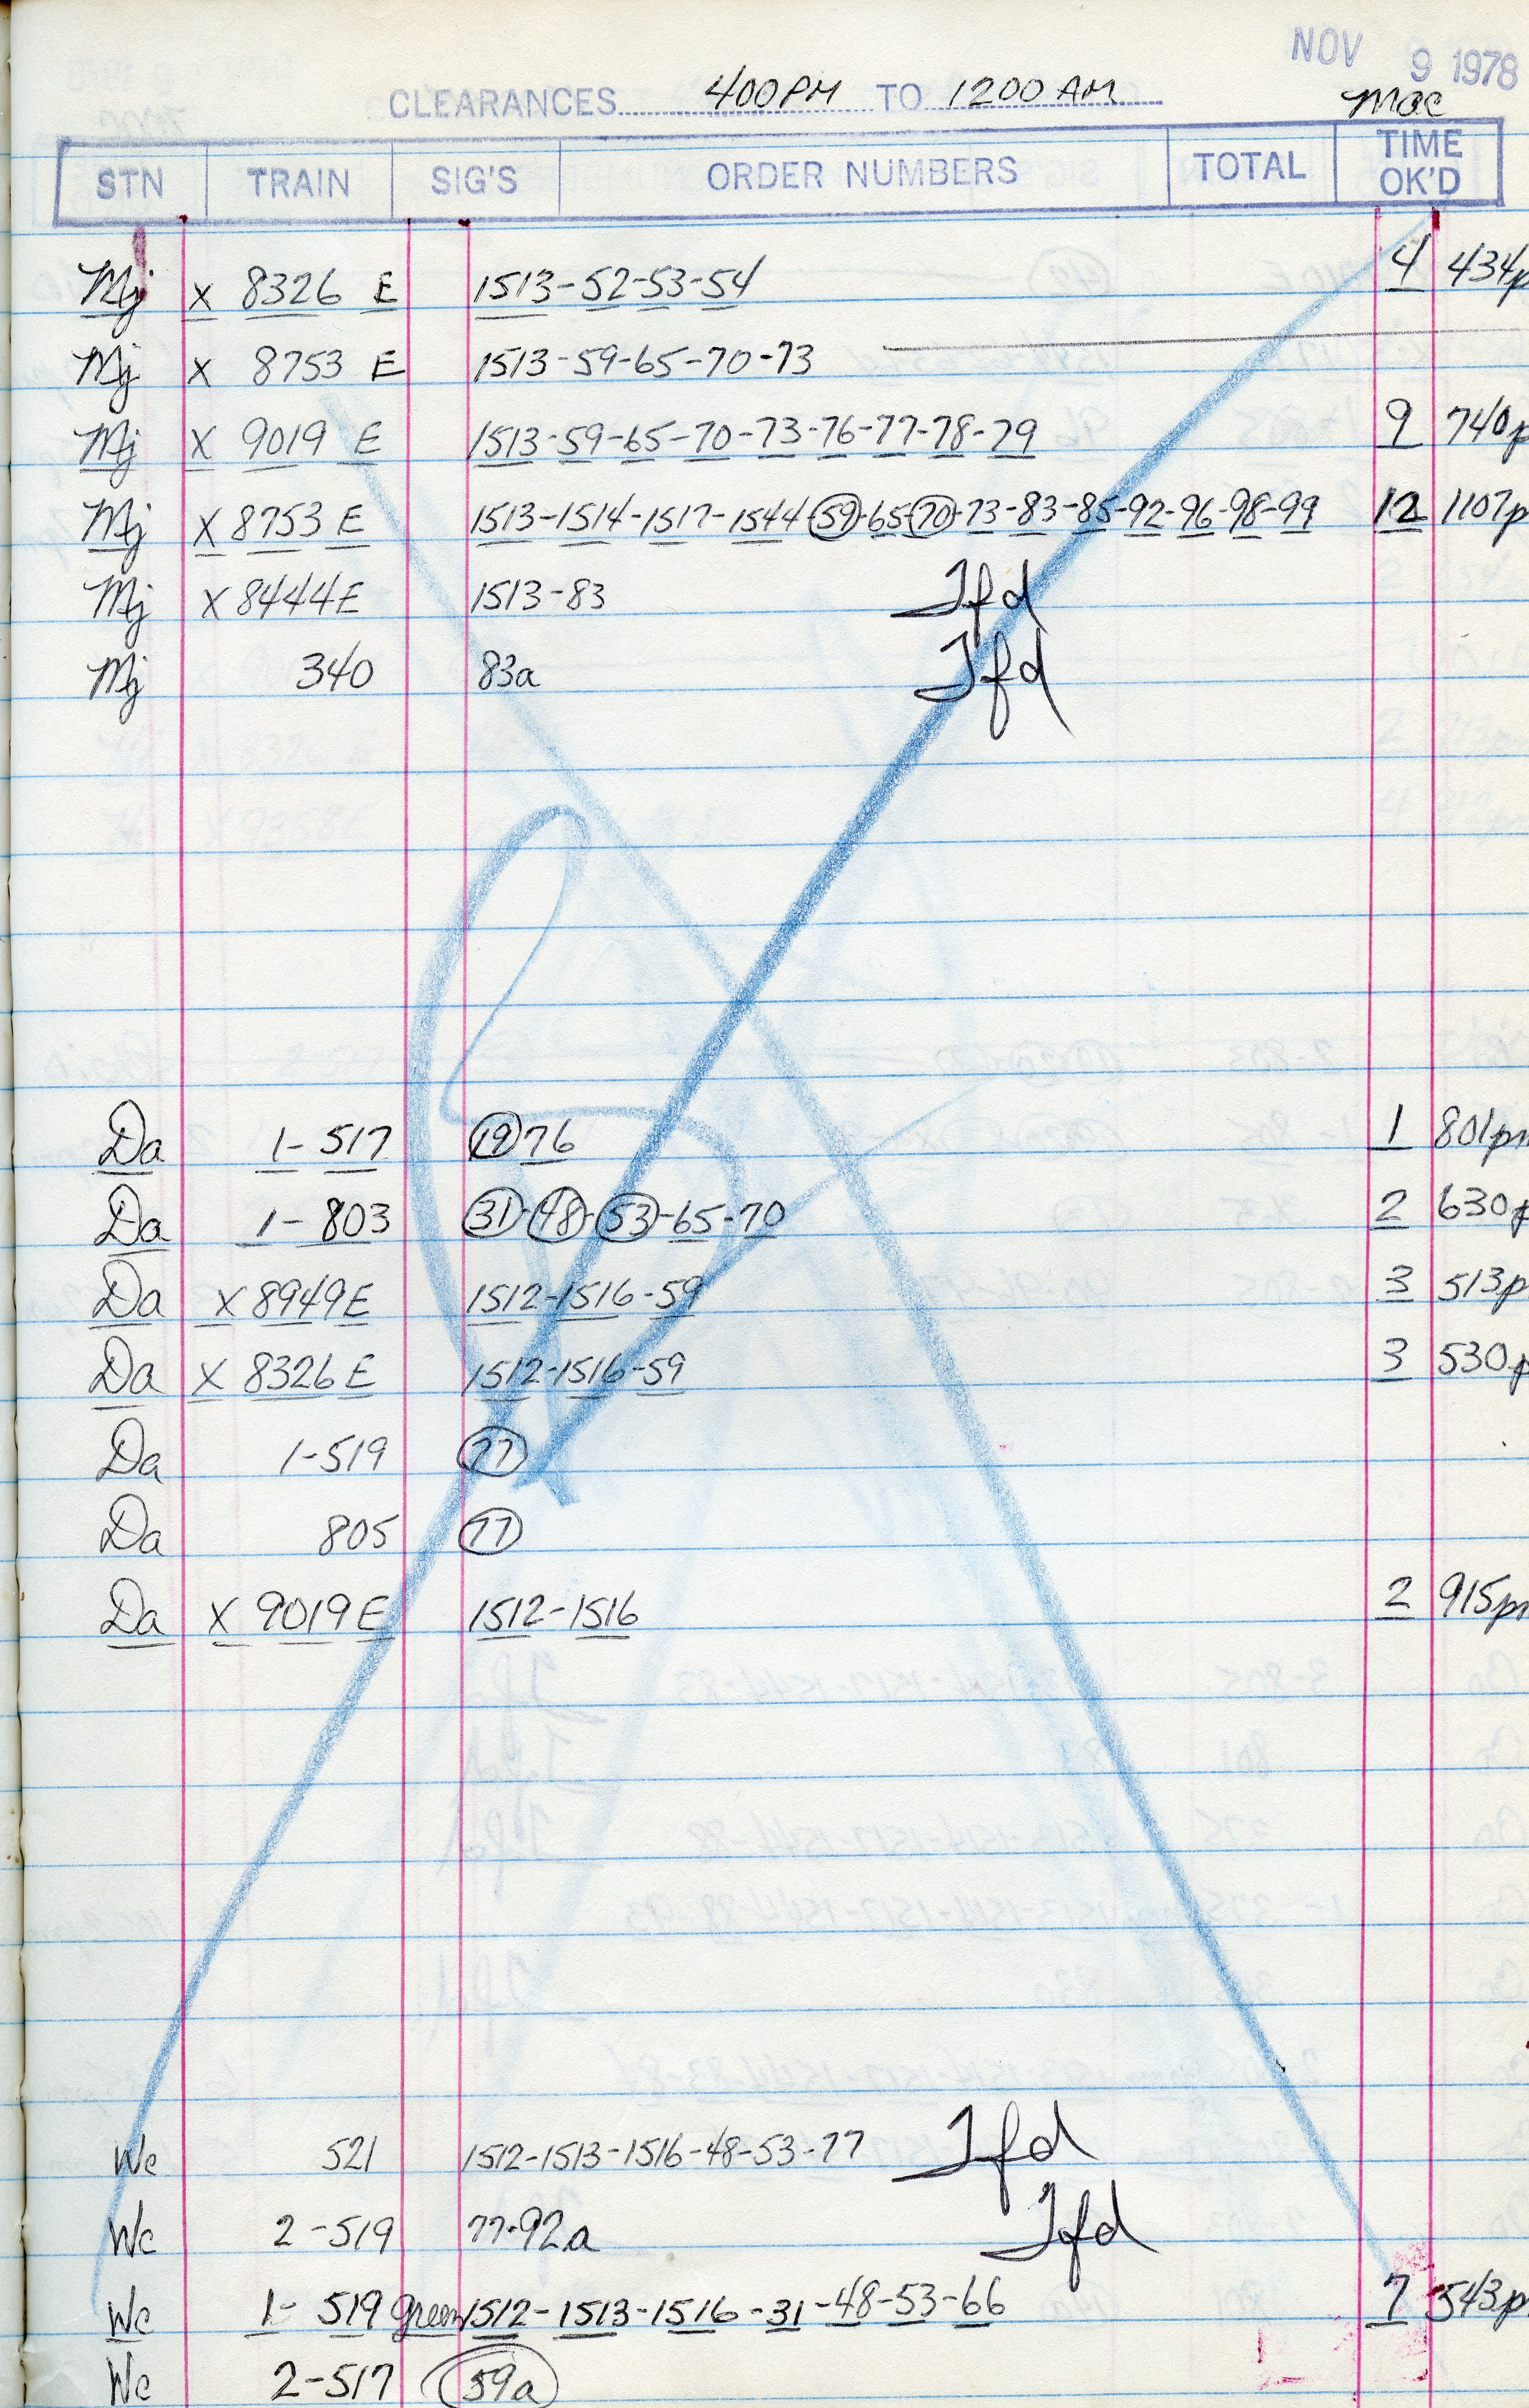 NOV 9 1978
CLEARANCES 400PM TO 1200 AM
Mac
STN TRAIN SIG'S ORDER NUMBERS TOTAL TIME OK'D
Mj x 8326 E 1513-52-53-54 4 434p
Mj x 8753 E 1513-59-65-70-73
Mj x 9019 E 1513-59-65-70-73-76-77-78-79 9 740p
Mj x 8753 E 1513-1514-1517-1544-59-65-70-73-83-85-92-96-98-99 12 1107p
Mj x 8444 E 1513-83 Tfd
Mj 340 83a Tfd
Da 1-517 19 76 1 801pm
Da 1-803 31-48-53-65-70 2 630p
Da x 8949 E 1512-1516-59 3 513p
Da x 8326 E 1512-1516-59 3 530p
Da 1-519 77
Da 805 77
Da x 9019 E 1512-1516 2 915pm
Wc 521 1512-1513-1516-48-53-77 Tfd
Wc 2-519 77-92a Tfd
Wc 1-519 green 1512-1513-1516-31-48-53-66 7 543p
Wc 2-517 59a